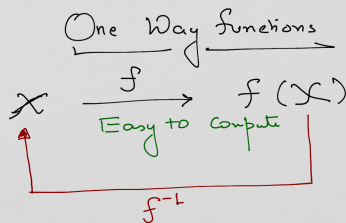 One Way functions
f
X f(X)
Easy to compute
f⁻¹